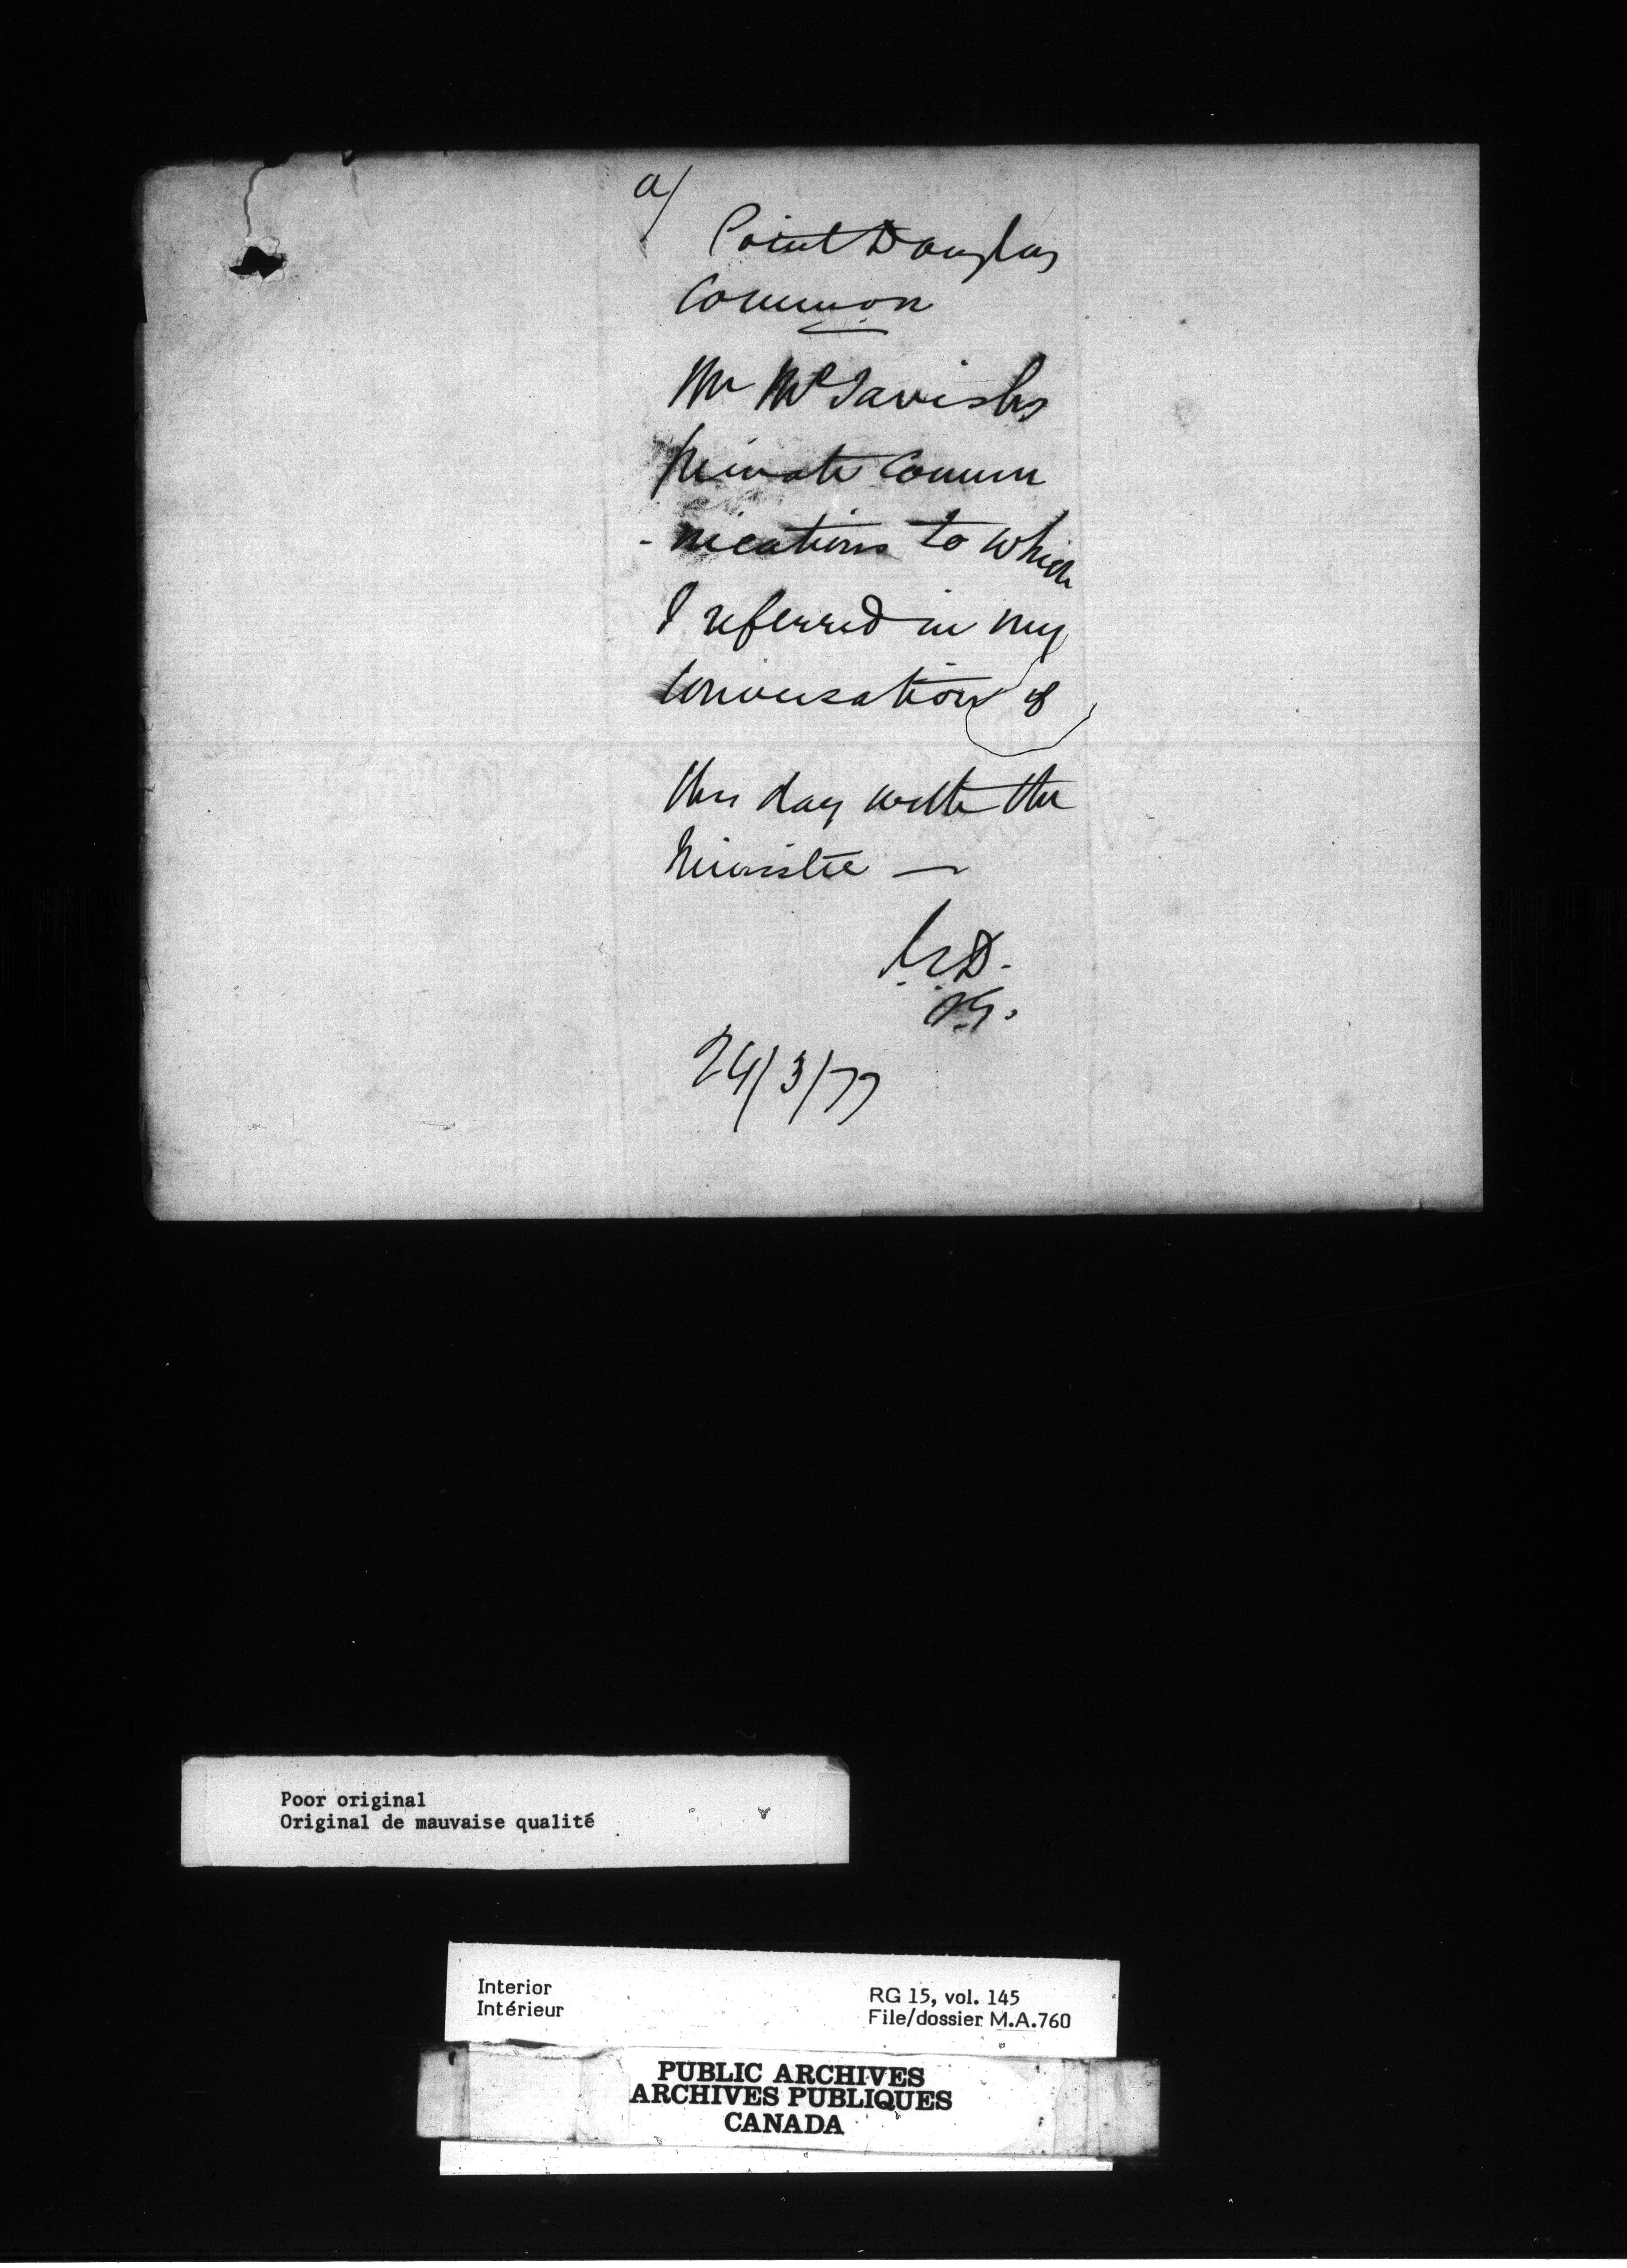 a/
Point Douglas
Common
Mr McTavishs
private Commu
-nications to which
I referred in my
Conversation of
this day with the
Minister —
D.
S.G.
24/3/77
Poor original
Original de mauvaise qualité
Interior
Intérieur
RG 15, vol. 145
File/dossier M.A.760
PUBLIC ARCHIVES
ARCHIVES PUBLIQUES
CANADA